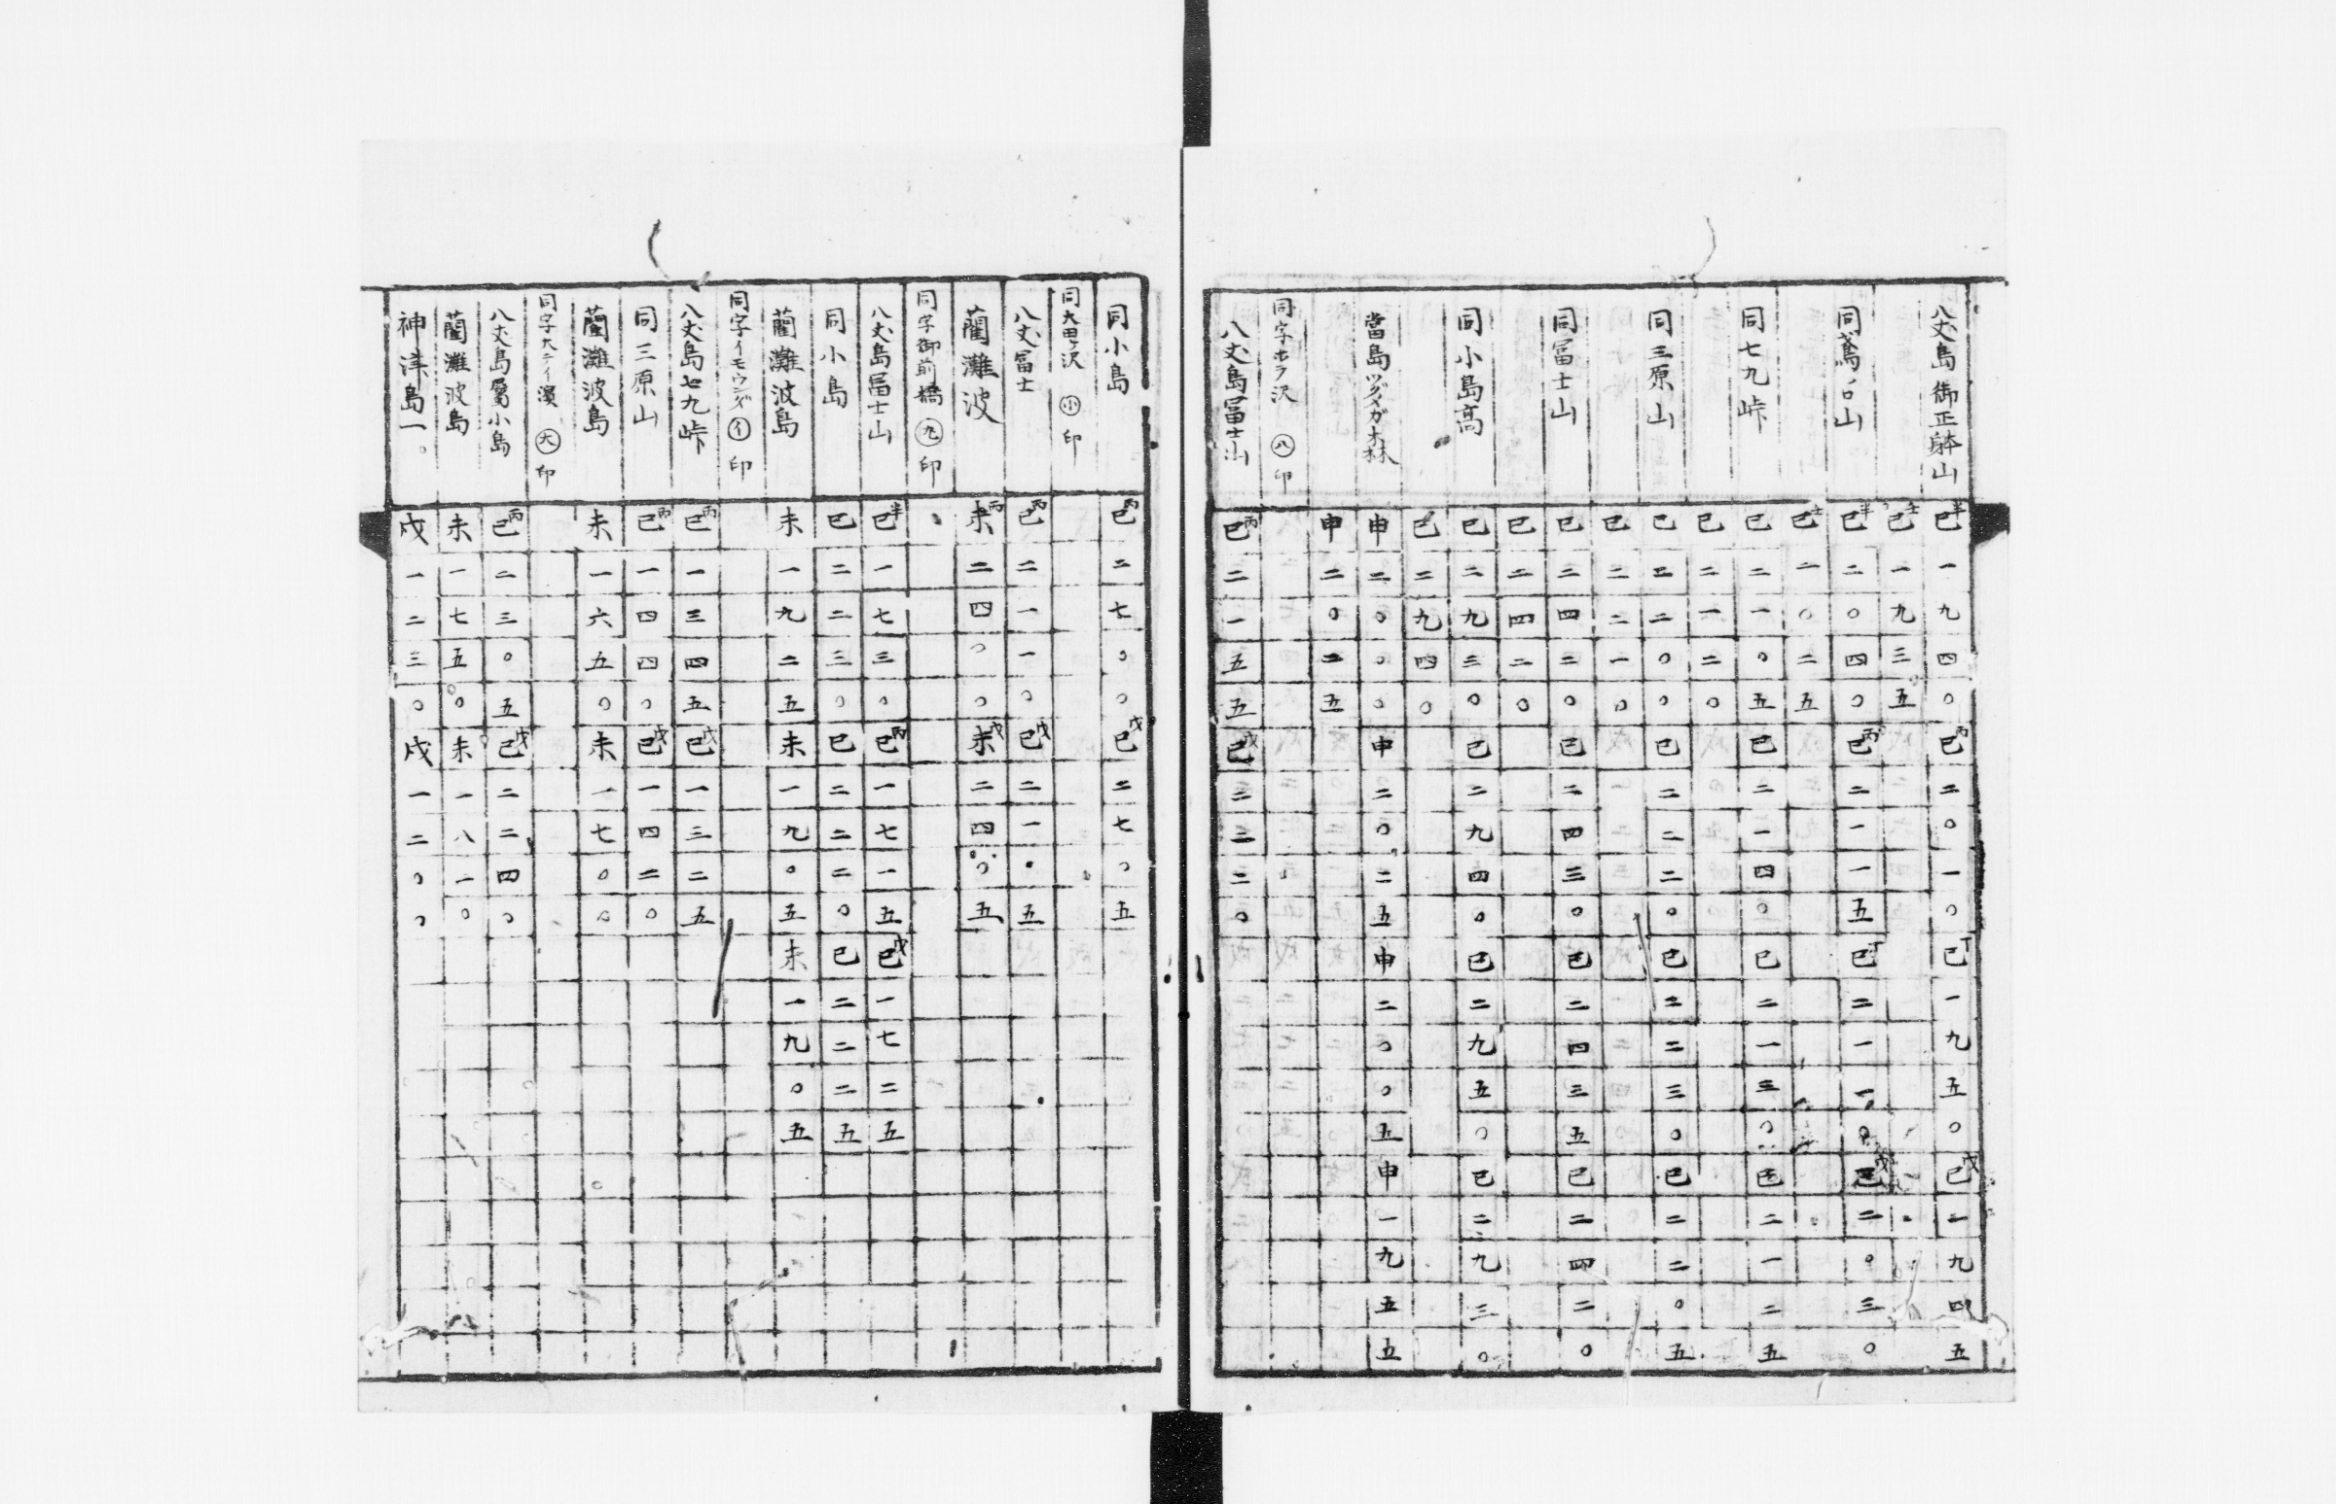 八丈島御正躰山 半巳一九四〇 丙巳二〇一〇 丁巳一九五〇 戊巳一九四五
壬巳一九三五
同鳶ノ口山 半巳二〇四〇 丙巳二一一五 丁巳二一一〇 戊巳二〇三〇
壬巳二〇二五
同七九峠 巳二一〇五 巳二一四〇 巳二一三〇 巳二一二五
巳二一二〇
同三原山 巳二二〇〇 巳二二二〇 巳二二三〇 巳二二〇五
巳二二一〇
同冨士山 巳二四二〇 巳二四三〇 巳二四三五 巳二四二〇
巳二四二〇
同小島高 巳二九三〇 巳二九四〇 巳二九五〇 巳二九三〇
巳二九四〇
當島ツヅメガ木森 申二〇〇〇 申二〇二五 申二〇〇五 申一九五五
申二〇二五
同字ホラ沢 ㋩印
八丈島冨士山 丙巳二一五五 戊巳二三二〇
同小島 丙巳二七〇〇 戊巳二七〇五
同大田ヶ沢 小印
八丈冨士 丙巳二一一〇 戊巳二一〇五
藺灘波 丙未二四〇〇 戊未二四〇五
同字御前橋 ㊈印
八丈島冨士山 半巳一七三〇 丙巳一七一五 戊巳一七二五
同小島 巳二二三〇 巳二二二〇 巳二二二五
藺灘波島 未一九二五 未一九〇五 未一九〇五
同字イモウンダ ㋑印
八丈島七九峠 丙巳一三四五 戊巳一三二五
同三原山 丙巳一四四〇 戊巳一四二〇
藺灘波島 未一六五〇 未一七〇〇
同字大テイ濱 大印
八丈島属小島 丙巳二三〇五 戊巳二二四〇
藺灘波島 未一七五〇 未一八一〇
神津島一。 戌一二三〇 戌一二〇〇